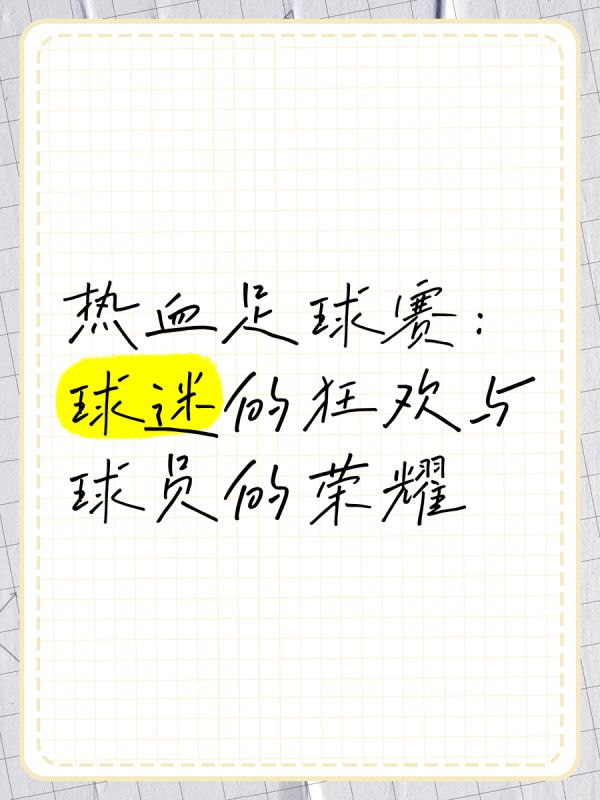 热血足球赛：
球迷的狂欢与
球员的荣耀